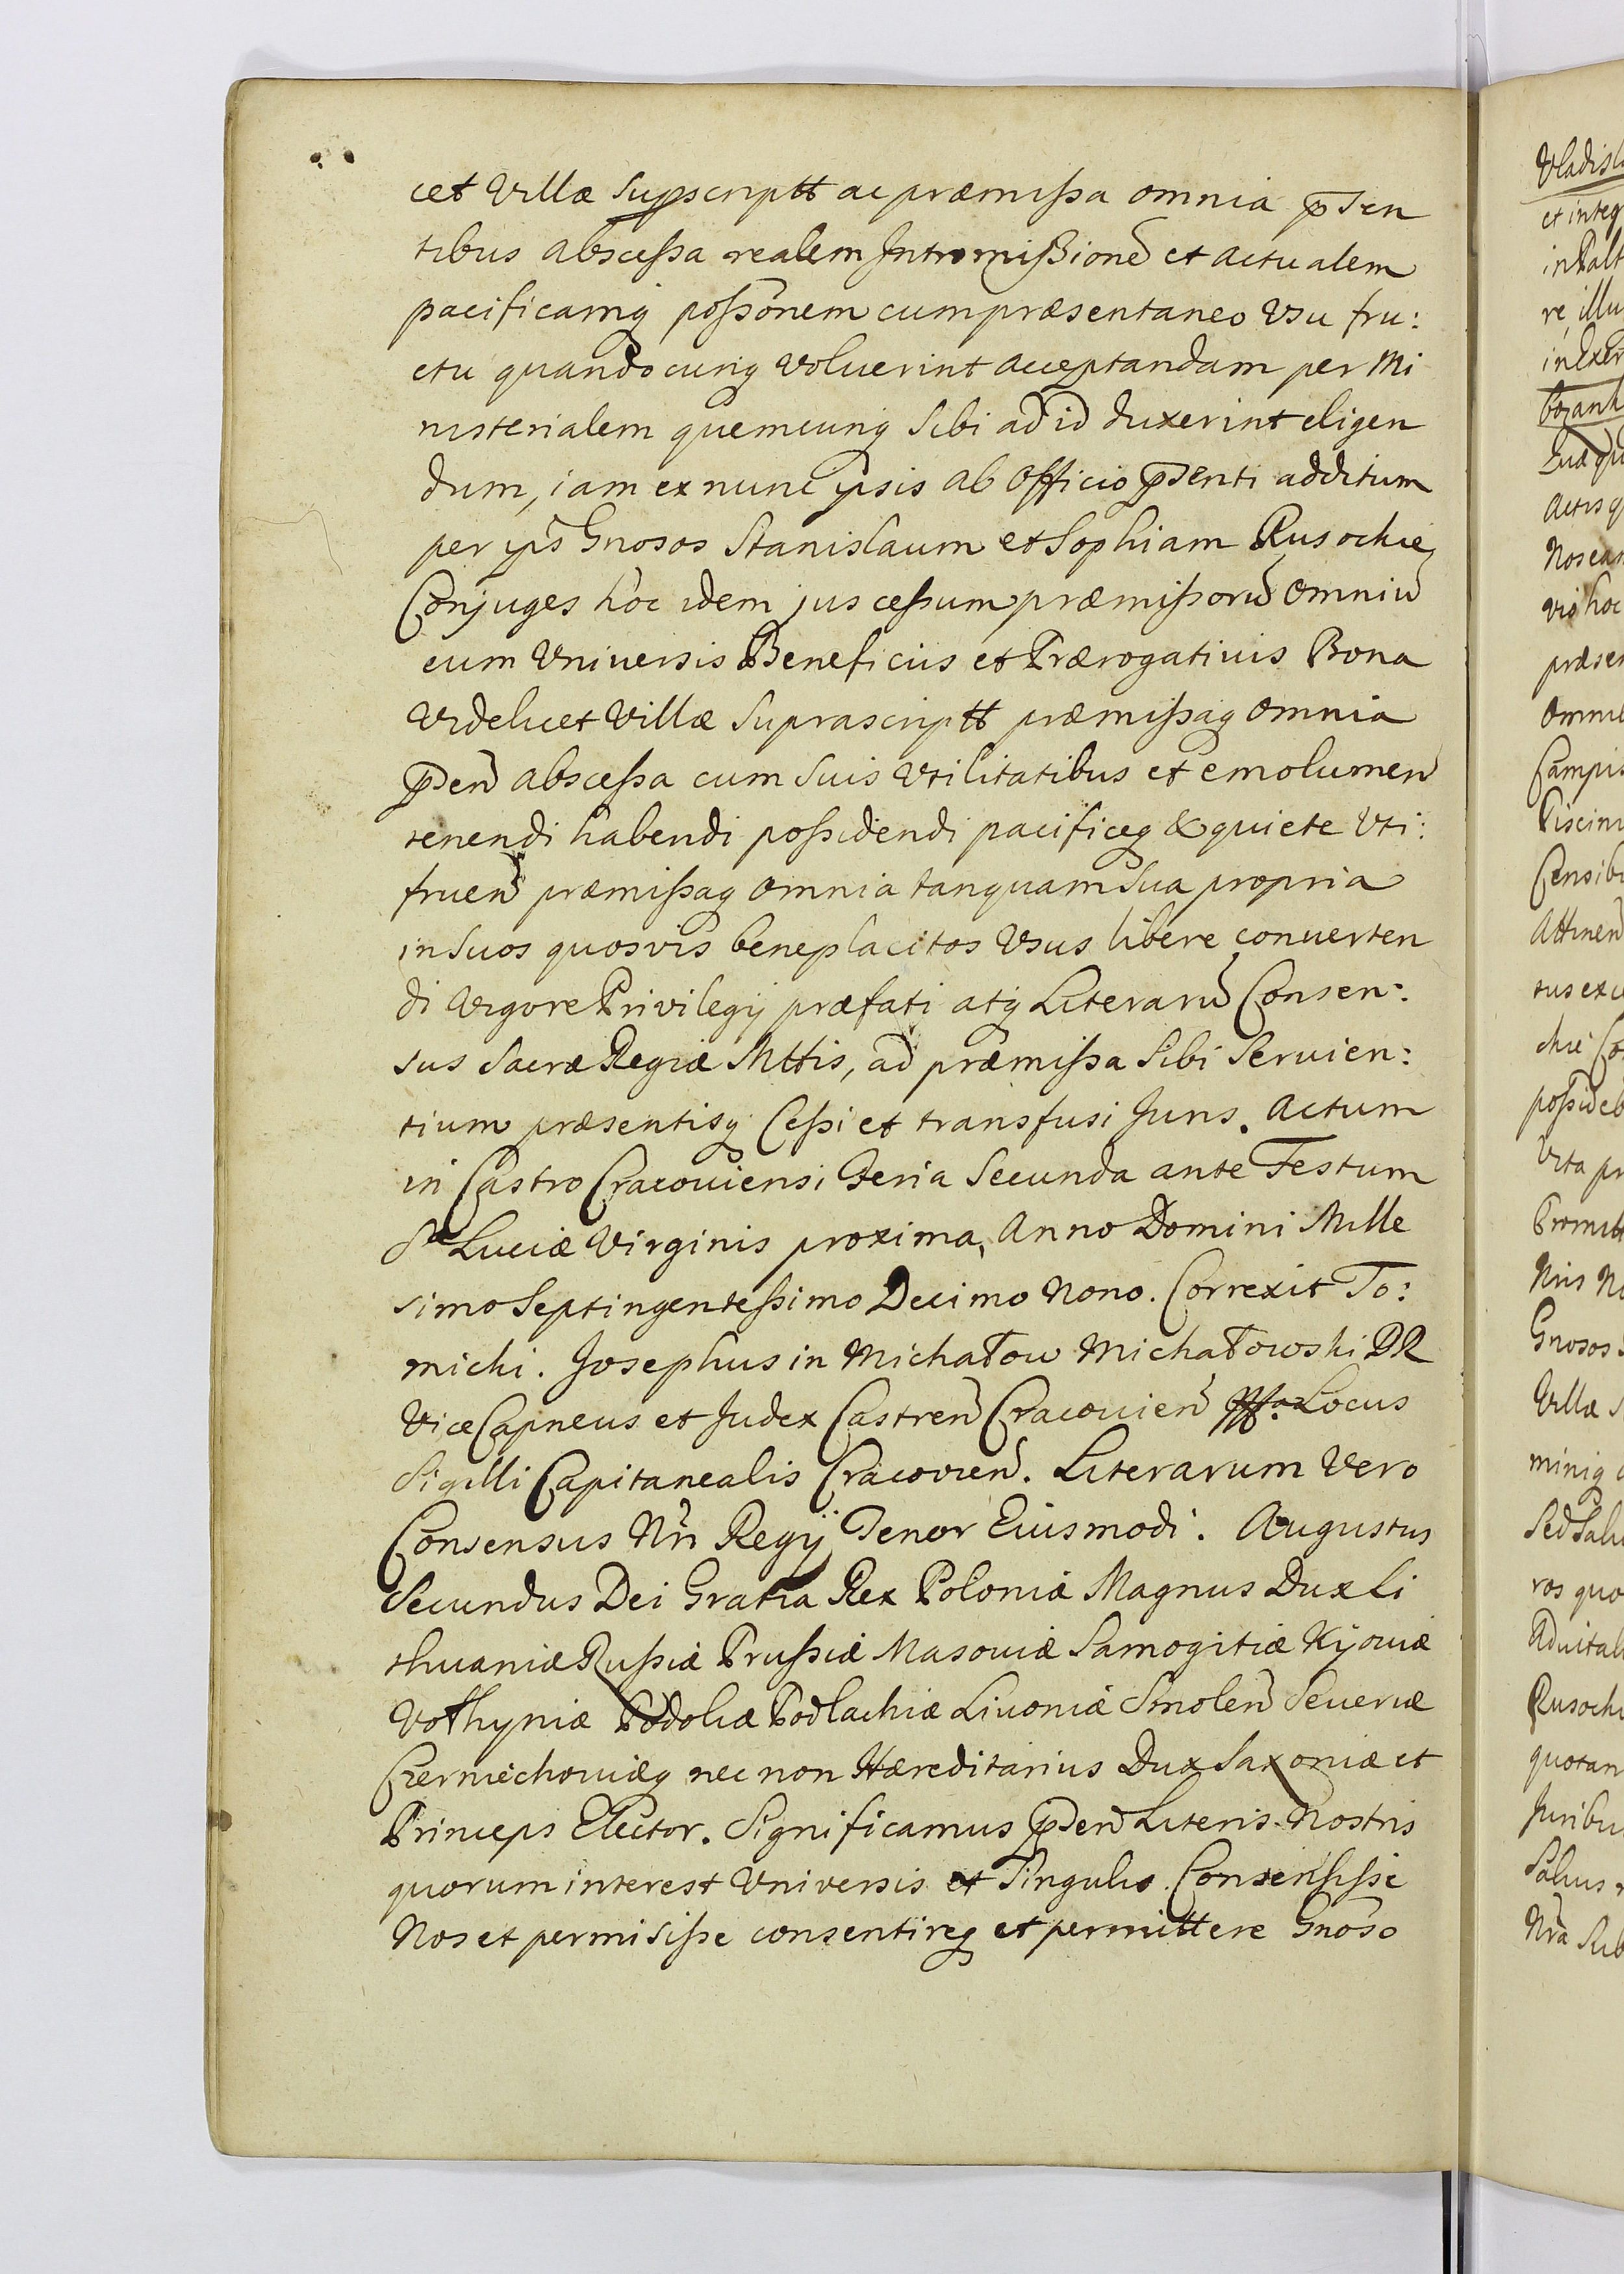 cet Villæ Supscriptt ac præmissa omnia pden
tibus abscessa realem Intromissionē et actualem
pacificamq́ posśonem cum præsentaneo Vsu fru:
ctu quandocunq́ Voluerint acceptandam per Mi
nisterialem quemcunq́ Sibi ad id duxerint eligen
dum, iam ex nunc ipsis ab Officio pdenti additum
per ip̄s Gnosos Stanislaum et Sophiam Rusockie
Conjuges hoc idem jus cessum præmissorū Omniū
cum Vniuersis Beneficiis et Prærogativis Bona
Videlicet Villæ Suprascriptt præmissaq́ Omnia
pden̄ abscessa cum Suis Vtilitatibus et emolumen̄
tenendi habendi possidendi pacificeq́ & quiete Vti:
fruen̄ præmissaq́ omnia tanquam Sua propria
in Suos quosvis beneplacitos Vsus libere conuerten
di Vigore Privilegij præfati atq́ Literarū Consen:
sus Sacræ Regiæ Mttis, ad præmissa Sibi Seruien:
tium præsentisq́ Cessi et transfusi Juris. Actum
in Castro Cracouiensi Feria Secunda ante Festum
Stæ Luciæ Virginis proxima, Anno Domini Mille
simo Septingentessimo Decimo Nono. Correxit To:
micki. Josephus in Michałow Michałowski PR
Vice Capneus et Judex Castren̄ Cracouien̄ Locus
Sigilli Capitanealis Cracovien̄. Literarum Vero
Consensus Nrī Regij Tenor Eiusmodi. Augustus
Secundus Dei Gratia Rex Poloniæ Magnus Dux Li
thuaniæ Russiæ Prussiæ Masouiæ Samogitiæ Kijouiæ
Vołhyniæ Podoliæ Podlachiæ Liuoniæ Smolen̄ Seueriæ
Czerniechouiæq́ nec non Hæreditarius Dux Saxoniæ et
Princeps Elector. Significamus pden̄ Literis Nostris
quorum interest Vniversis et Singulis. Consensisse
Nos et permisisse consentireq́ et permittere Gnoso